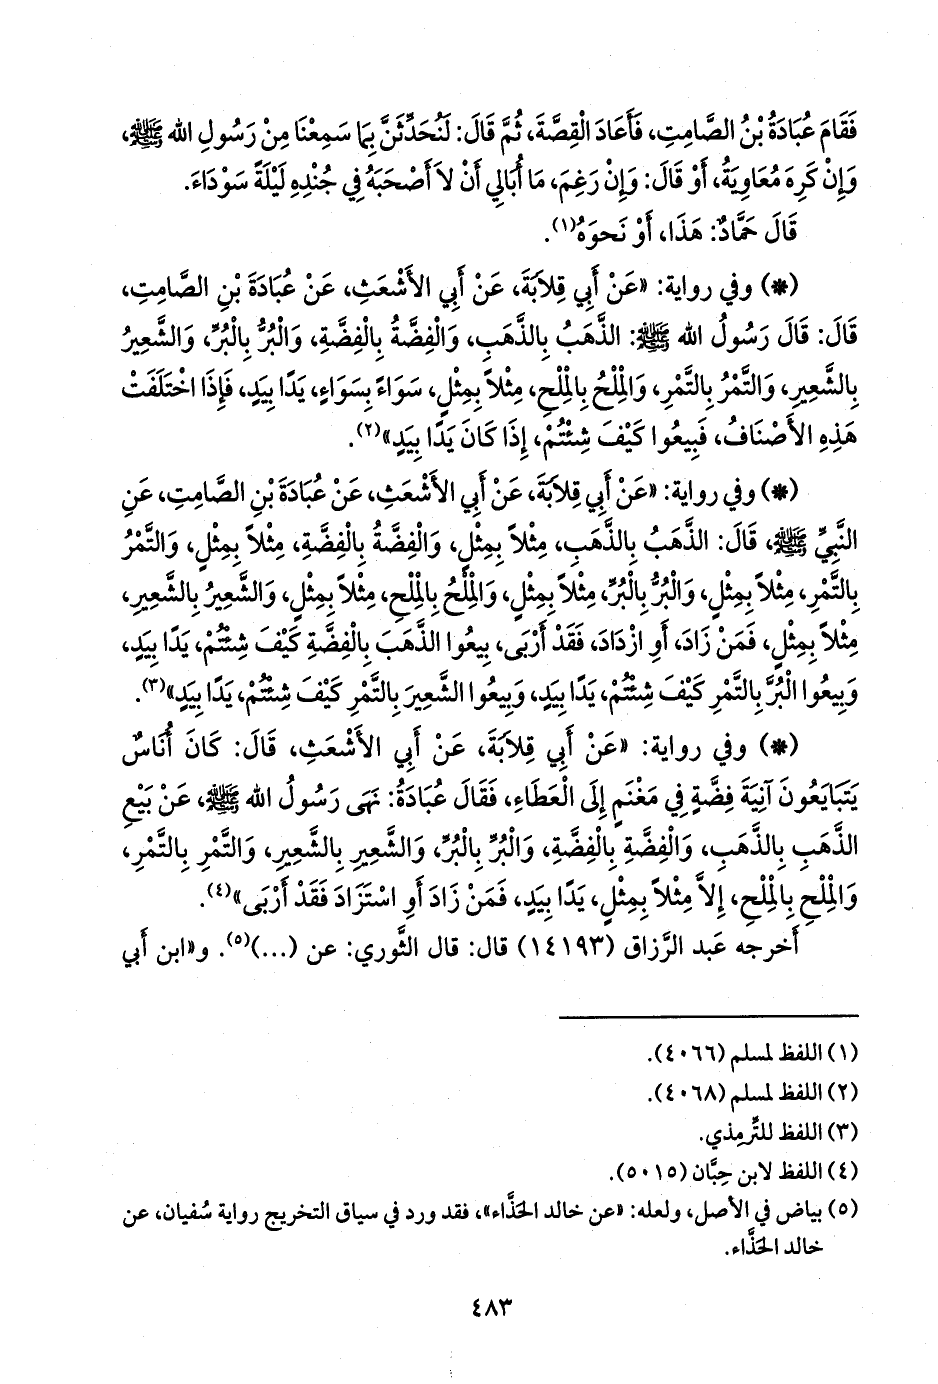 فَقَامَ عُبَادَةُ بْنُ الصَّامِتِ، فَأَعَادَ الْقِصَّةَ، ثُمَّ قَالَ: لَنُحَدِّثَنَّ بِمَا سَمِعْنَا مِنْ رَسُولِ الله ﷺ،
وَإِنْ كَرِهَ مُعَاوِيَةُ، أَوْ قَالَ: وَإِنْ رَغِمَ، مَا أُبَالِي أَنْ لاَ أَصْحَبَهُ فِي جُنْدِهِ لَيْلَةً سَوْدَاءَ.
قَالَ حَمَّادٌ: هَذَا، أَوْ نَحوَهُ(١).
(*) وفي رواية: «عَنْ أَبِي قِلاَبَةَ، عَنْ أَبِي الأَشْعَثِ، عَنْ عُبَادَةَ بْنِ الصَّامِتِ،
قَالَ: قَالَ رَسُولُ الله ﷺ: الذَّهَبُ بِالذَّهَبِ، وَالْفِضَّةُ بِالْفِضَّةِ، وَالْبُرُّ بِالْبُرِّ، وَالشَّعِيرُ
بِالشَّعِيرِ، وَالتَّمْرُ بِالتَّمْرِ، وَالْمِلْحُ بِالْمِلْحِ، مِثْلاً بِمِثْلٍ، سَوَاءً بِسَوَاءٍ، يَدًا بِيَدٍ، فَإِذَا اخْتَلَفَتْ
هَذِهِ الأَصْنَافُ، فَبِيعُوا كَيْفَ شِئْتُمْ، إِذَا كَانَ يَدًا بِيَدٍ»(٢).
(*) وفي رواية: «عَنْ أَبِي قِلاَبَةَ، عَنْ أَبِي الأَشْعَثِ، عَنْ عُبَادَةَ بْنِ الصَّامِتِ، عَنِ
النَّبِيِّ ﷺ، قَالَ: الذَّهَبُ بِالذَّهَبِ، مِثْلاً بِمِثْلٍ، وَالْفِضَّةُ بِالْفِضَّةِ، مِثْلاً بِمِثْلٍ، وَالتَّمْرُ
بِالتَّمْرِ، مِثْلاً بِمِثْلٍ، وَالْبُرُّ بِالْبُرِّ، مِثْلاً بِمِثْلٍ، وَالْمِلْحُ بِالْمِلْحِ، مِثْلاً بِمِثْلٍ، وَالشَّعِيرُ بِالشَّعِيرِ،
مِثْلاً بِمِثْلٍ، فَمَنْ زَادَ، أَوِ ازْدَادَ، فَقَدْ أَرْبَى، بِيعُوا الذَّهَبَ بِالْفِضَّةِ كَيْفَ شِئْتُمْ، يَدًا بِيَدٍ،
وَبِيعُوا الْبُرَّ بِالتَّمْرِ كَيْفَ شِئْتُمْ، يَدًا بِيَدٍ، وَبِيعُوا الشَّعِيرَ بِالتَّمْرِ كَيْفَ شِئْتُمْ، يَدًا بِيَدٍ»(٣).
(*) وفي رواية: «عَنْ أَبِي قِلاَبَةَ، عَنْ أَبِي الأَشْعَثِ، قَالَ: كَانَ أُنَاسٌ
يَتَبَايَعُونَ آنِيَةَ فِضَّةٍ فِي مَغْنَمٍ إِلَى الْعَطَاءِ، فَقَالَ عُبَادَةُ: نَهَى رَسُولُ الله ﷺ، عَنْ بَيْعِ
الذَّهَبِ بِالذَّهَبِ، وَالْفِضَّةِ بِالْفِضَّةِ، وَالْبُرِّ بِالْبُرِّ، وَالشَّعِيرِ بِالشَّعِيرِ، وَالتَّمْرِ بِالتَّمْرِ،
وَالْمِلْحِ بِالْمِلْحِ، إِلاَّ مِثْلاً بِمِثْلٍ، يَدًا بِيَدٍ، فَمَنْ زَادَ أَوِ اسْتَزَادَ فَقَدْ أَرْبَى»(٤).
أَخرجه عَبد الرَّزاق (١٤١٩٣) قال: قال الثَّوري: عن (...)(٥). و«ابن أَبي
(١) اللفظ لمسلم (٤٠٦٦).
(٢) اللفظ لمسلم (٤٠٦٨).
(٣) اللفظ للتِّرمِذي.
(٤) اللفظ لابن حِبَّان (٥٠١٥).
(٥) بياض في الأصل، ولعله: «عن خالد الحَذَّاء»، فقد ورد في سياق التخريج رواية سُفيان، عن
خالد الحَذَّاء.
٤٨٣